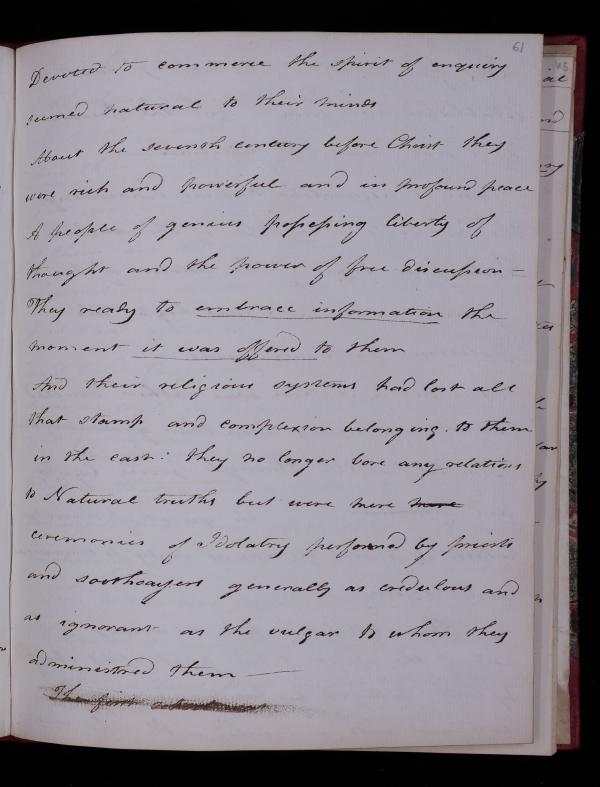 61
Devoted to commerce the spirit of enquiry
seemed natural to their minds
About the seventh century before Christ they
were rich and powerful and in profound peace
A people of genius possessing liberty of
thought and the power of free discussion –
They ready to embrace information the
moment it was offered to them
And their religious systems had lost all
that stamp and complexion belonging to them
in the east: they no longer bore any relations
to Natural truths but were mere mere
ceremonies of Idolatry performed by priests
and soothsayers generally as credulous and
as ignorant as the vulgar to whom they
administred them —
The first